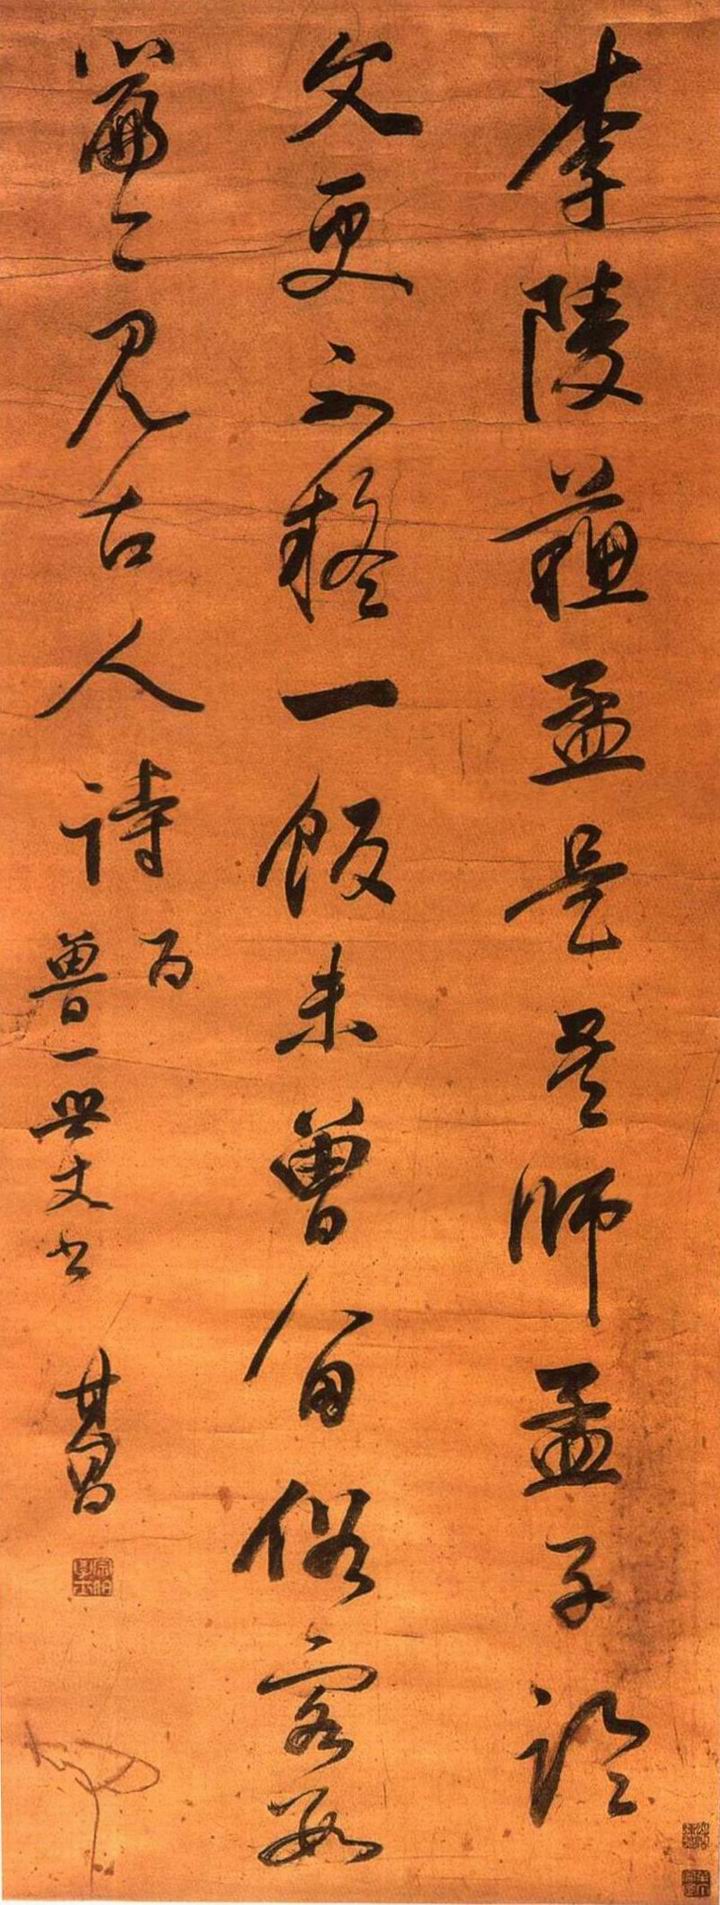 李陵蘇孟是吾師孟子論
文更不疑一飯未曾留俗客數
篇今見古人詩
為
魯一世丈書 其昌
宗伯學士